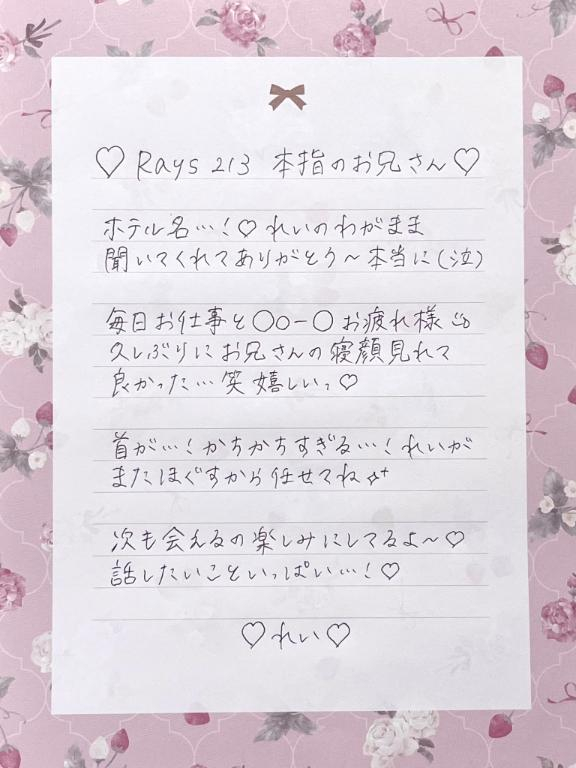 ♡ Rays 213 本指のお兄さん♡
ホテル名…！♡ れいのわがまま
聞いてくれてありがとう〜本当に(泣)
毎日お仕事と〇〇ー〇お疲れ様
久しぶりにお兄さんの寝顔見れて
良かった…笑 嬉しいっ♡
首が…！かちかちすぎる…！れいが
またほぐすから任せてね
次も会えるの楽しみにしてるよ〜♡
話したいこといっぱい…！♡
♡れい♡